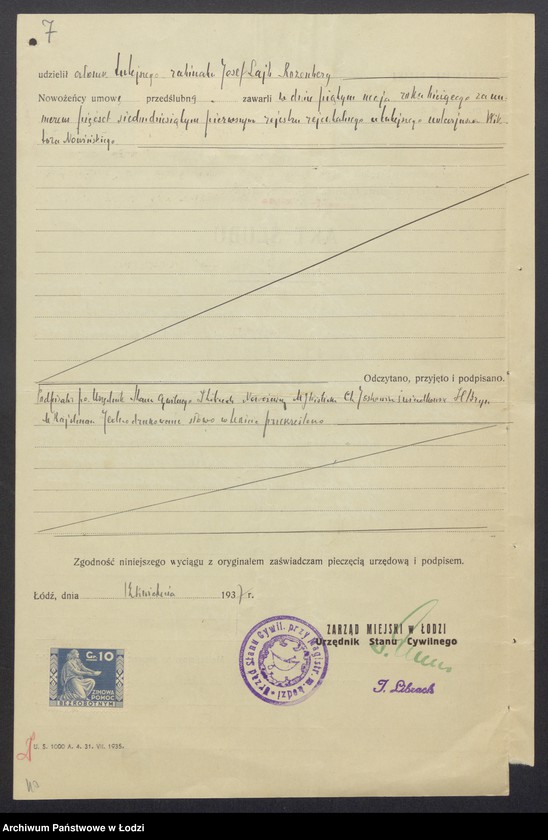 7
udzielił członek tutejszego rabinatu Josef Lajb Rozenberg
Nowożeńcy umowę przedślubną zawarli w dniu piątym maja roku bieżącego za nu-
merem pięćset siedmdziesiątym pierwszym rejestru rejentalnego u tutejszego notarjusza Wik-
tora Nowińskiego
Odczytano, przyjęto i podpisano.
Podpisali: p.o. Urzędnik Stanu Cywilnego I Librach
Jedno drukowane słowo w akcie przekreślono
Zgodność niniejszego wyciągu z oryginałem zaświadczam pieczęcią urzędową i podpisem.
Łódź, dnia kwietnia 1937 r.
ZARZĄD MIEJSKI w ŁODZI
Urzędnik Stanu Cywilnego
I. Librach
Urząd Stanu Cywil. przy Magistr. m. Łodzi
Gr. 10
ZIMOWA
POMOC
BEZROBOTNYM
U. S. 1000 A. 4. 31. VII. 1935.
Archiwum Państwowe w Łodzi